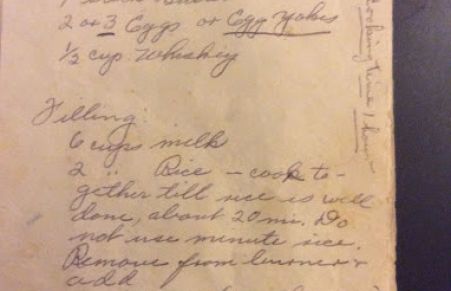 2 or 3 Eggs or Egg Yokes
1/2 cup Whiskey
Filling:
6 cups milk
2 " Rice — cook to-
gether till rice is well
done, about 20 mi. Do
not use minute rice.
Remove from burner &
add
Cooking time 1 hour